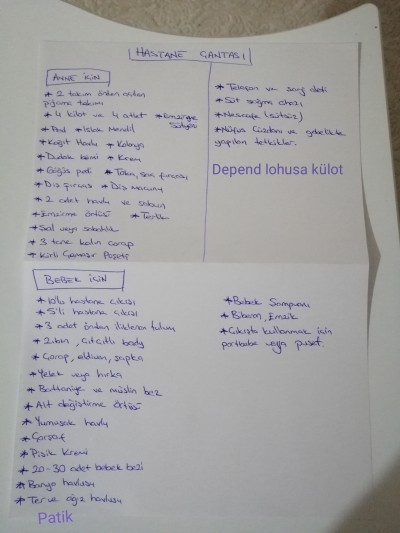 HASTANE ÇANTASI
ANNE İÇİN
* 2 takım önden açılan
pijama takımı
* 4 kilot ve 4 atlet * Emzirme
Sütyeni
* Ped * Islak Mendil
* Kağıt Havlu * Kolonya
* Dudak kremi * Krem
* Göğüs pedi * Toka, saç fırçası
* Diş fırçası * Diş macunu
* 2 adet havlu ve sabun
* Emzirme örtüsü * Terlik
* Şal veya sabahlık
* 3 tane kalın çorap
* Kirli Çamaşır Poşeti
* Telefon ve şarj aleti
* Süt sağma cihazı
* Nescafe (sütsüz)
* Nüfus Cüzdanı ve gebelikte
yapılan tetkikler.
Depend lohusa külot
BEBEK İÇİN
* 10'lu hastane çıkışı
* 5'li hastane çıkışı
* 3 adet önden iliklenen tulum
* Zıbın, Çıtçıtlı body
* Çorap, eldiven, şapka
* Yelek veya hırka
* Battaniye ve müslin bez
* Alt değiştirme örtüsü
* Yumuşak havlu
* Çarşaf
* Pişik Kremi
* 20-30 adet bebek bezi
* Banyo havlusu
* Ter ve ağız havlusu
Patik
* Bebek Şampuanı
* Biberon, Emzik
* Çıkışta kullanmak için
portbebe veya puset.